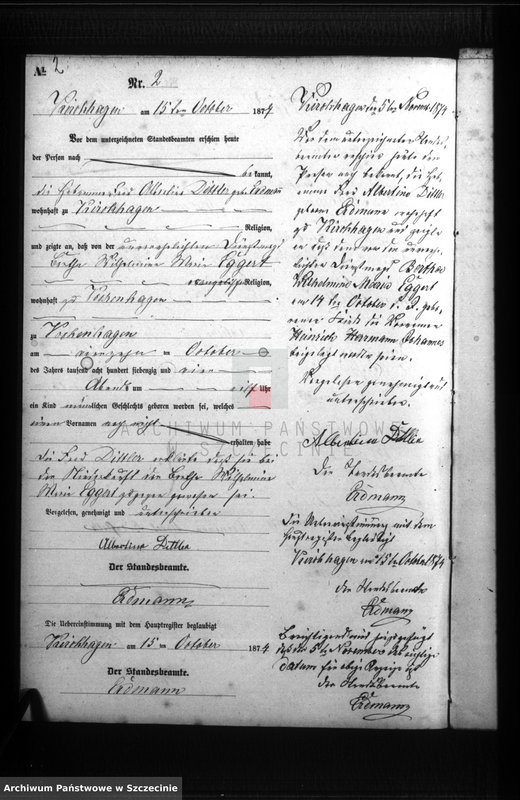 № 2
Nr. 2
Kirchhagen am 15ten October 1874
Vor dem unterzeichneten Standesbeamten erschien heute
der Person nach
bekannt,
die Hebamme Frau Albertine Dittler geb. Erdmann
wohnhaft zu Kirchhagen
Religion,
und zeigte an, daß von der unverehelichten Dienstmagd
Bertha Wilhelmine Marie Eggert
evangelischer Religion,
wohnhaft zu
zu
am vierzehn ten October
des Jahres tausend acht hundert siebenzig und vier
Abends um elf Uhr
ein Kind männlichen Geschlechts geboren worden sei, welches
einen Vornamen noch nicht
erhalten habe
Die Frau Dittler erklärte daß sie bei
der Niederkunft der Bertha Wilhelmine
Marie Eggert zugegen gewesen sei.
Vorgelesen, genehmigt und unterschrieben
Albertina Dittler
Der Standesbeamte.
Erdmann
Die Uebereinstimmung mit dem Hauptregister beglaubigt
Kirchhagen am 15 ten October 1874
Der Standesbeamte.
Erdmann
Kirchhagen den 5ten Novemr. 1874
Vor dem unterzeichneten Standes-
beamten erschien heute der
Person nach bekannt, die Heb-
amme Frau Albertine Dittler
geborene Erdmann wohnhaft
zu Kirchhagen und zeigte
an daß dem von der unvere-
lichten Dienstmagd Bertha
Wilhelmine Marie Eggert
am 14 ten October d. J. gebo-
renen Kinde die Vornamen
Heinrich Herrmann Johannes
beigelegt worden seien.
Vorgelesen genehmigt und
unterschrieben.
Albertina Dittler
Der Standesbeamte
Erdmann
Die Uebereinstimmung mit dem
Hauptregister beglaubigt
Kirchhagen am 15ten October 1874
Der Standesbeamte
Erdmann
Berichtigend wird hinzugefügt
daß der 5te November das richtige
Datum für obige Anzeige ist
Der Standesbeamte
Erdmann
ARCHIWUM PAŃSTWOWE
W SZCZECINIE
Archiwum Państwowe w Szczecinie